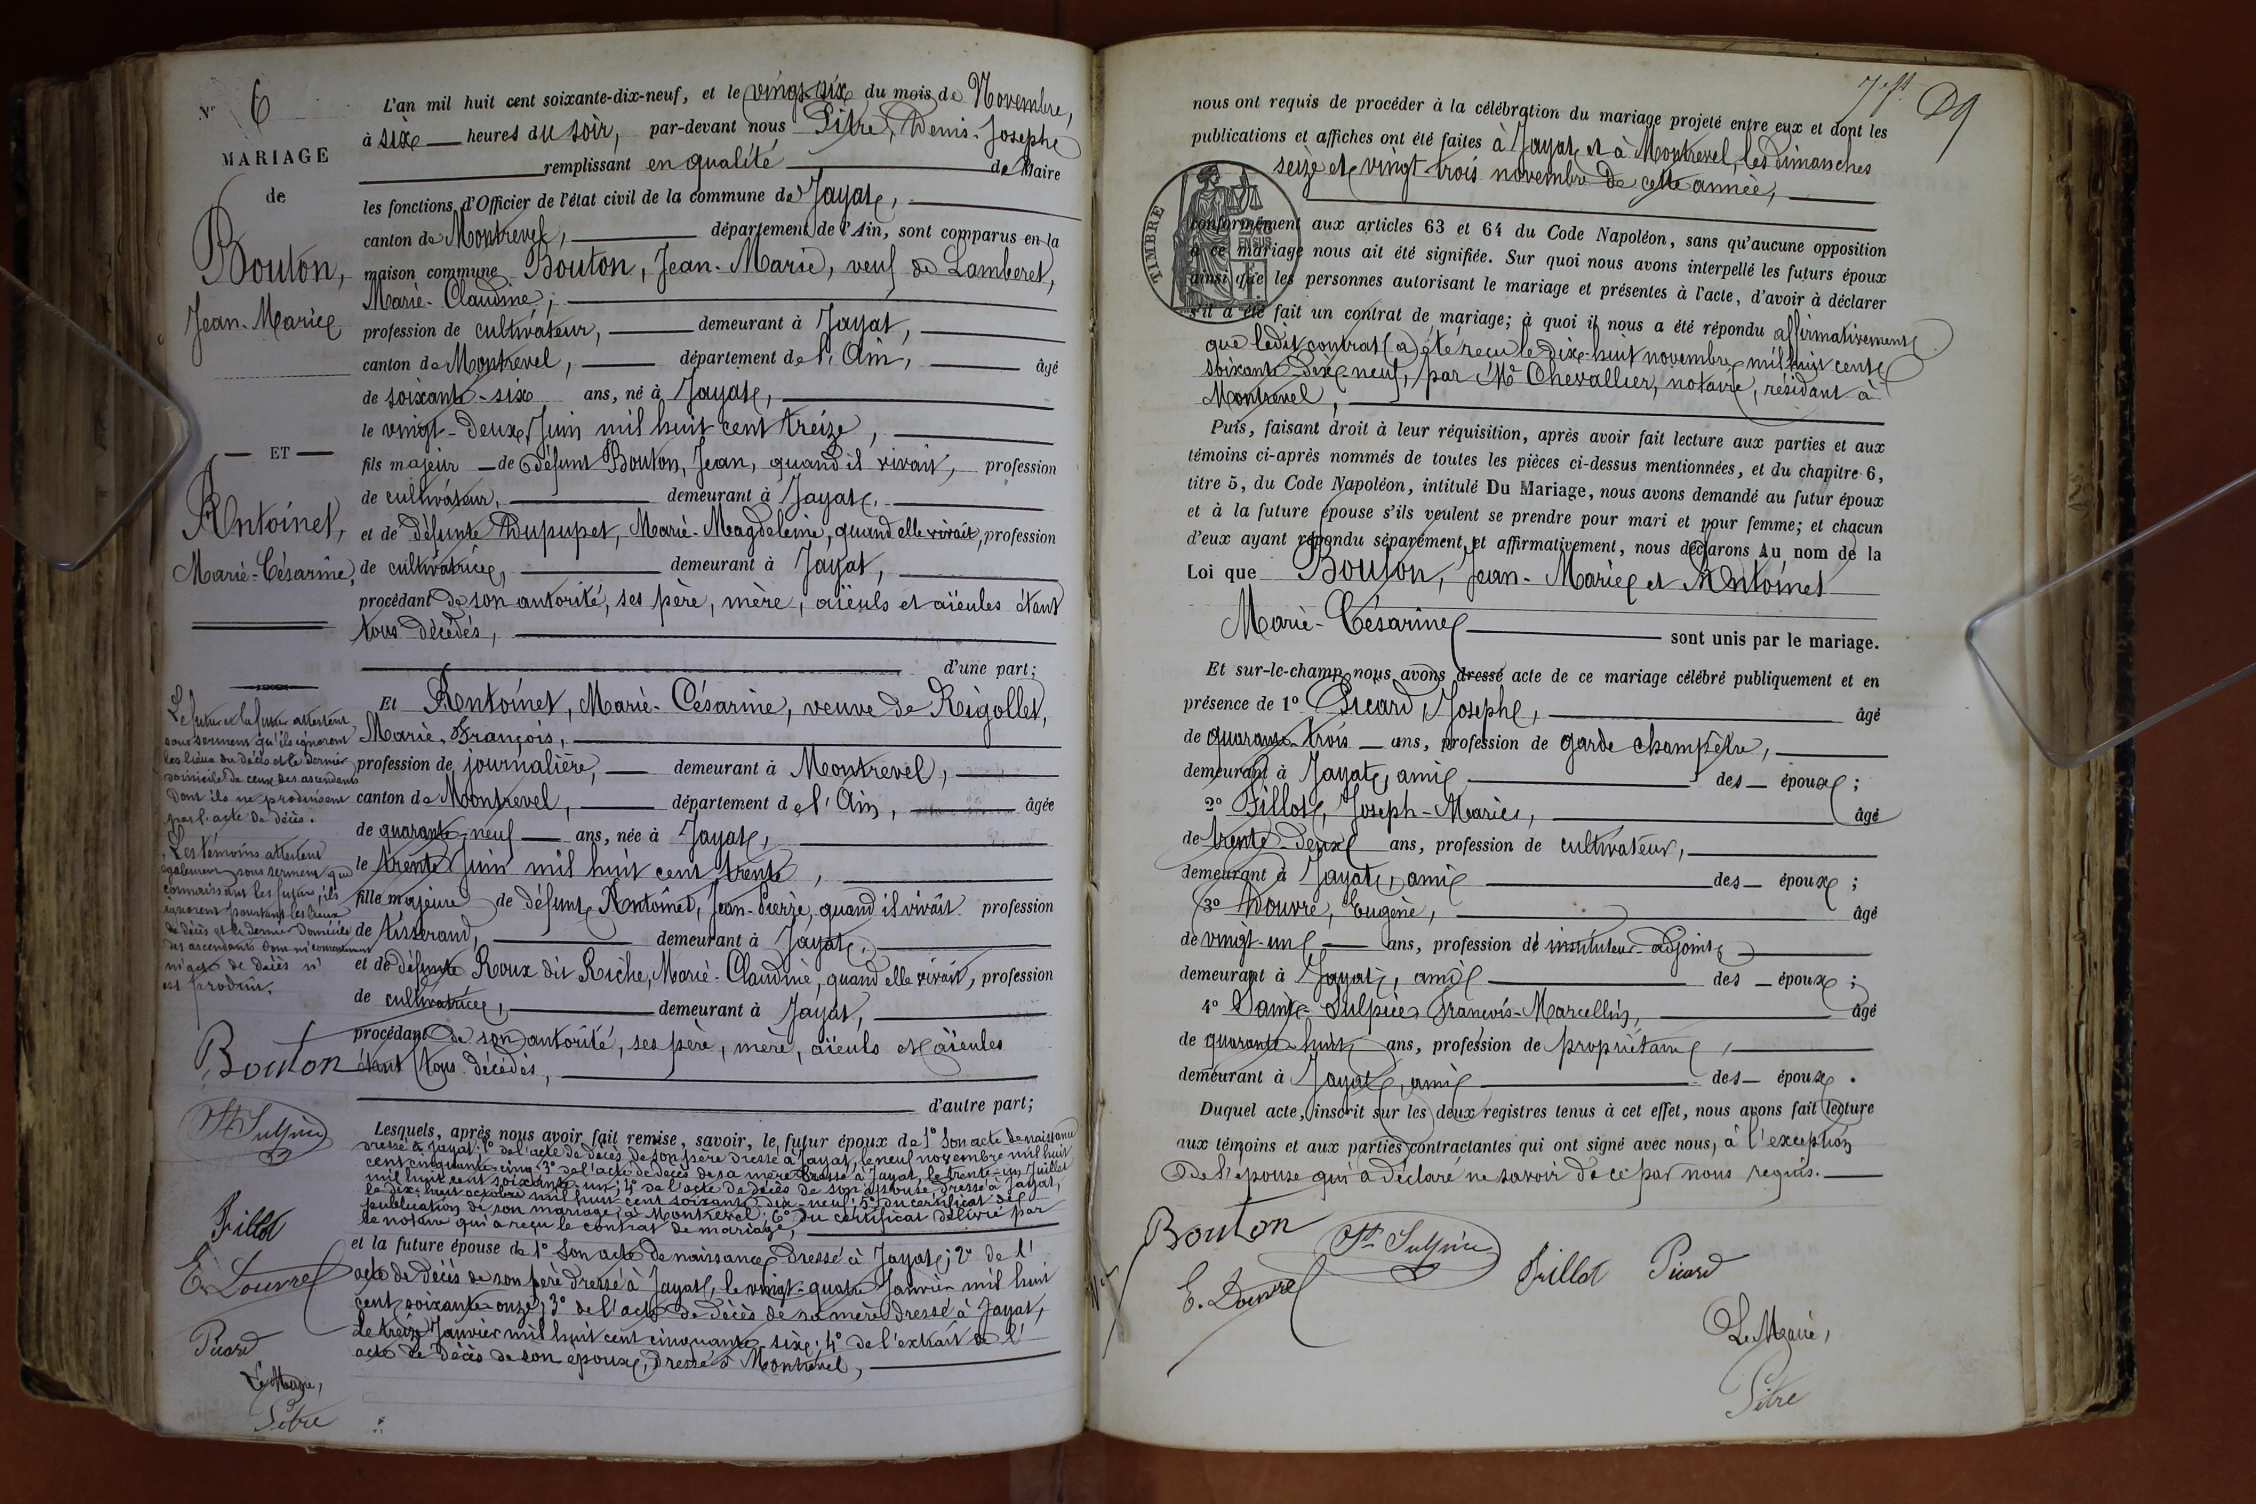 N° 6
MARIAGE
de
Bouton,
Jean-Marie
— ET —
Antoinet,
Marie-Césarine,
Le futur et la future attestent
sous serment qu'ils ignorent
les lieux du décès et le dernier
domicile de ceux des ascendants
dont ils ne produisent
pas l'acte de décès.
Les témoins attestent
également sous serment que
connaissant les futurs, ils
ignorent pourtant les lieux
de décès et le dernier domicile
des ascendants dont
ni acte de décès n'
est produit.
Bouton
St Sulpice
Fillot
E. Douvre
Picard
Le Maire,
Pitre
L'an mil huit cent soixante-dix-neuf, et le vingt-six du mois de Novembre,
à six heures du soir, par-devant nous Pitre, Denis-Joseph
remplissant en qualité de Maire
les fonctions d'Officier de l'état civil de la commune de Jayat,
canton de Montrevel, département de l'Ain, sont comparus en la
maison commune Bouton, Jean-Marie, veuf de Lamberet,
Marie-Claudine,
profession de cultivateur, demeurant à Jayat,
canton de Montrevel, département de l'Ain, âgé
de soixante-six ans, né à Jayat,
le vingt-deux Juin mil huit cent treize,
fils majeur de défunt Bouton, Jean, quand il vivait, profession
de cultivateur, demeurant à Jayat,
et de défunte Dupupet, Marie-Magdeleine, quand elle vivait, profession
de cultivatrice, demeurant à Jayat,
procédant de son autorité, ses père, mère, aïeuls et aïeules étant
tous décédés,
d'une part;
Et Antoinet, Marie-Césarine, veuve de Rigollet,
Marie-François,
profession de journalière, demeurant à Montrevel,
canton de Montrevel, département de l'Ain, âgée
de quarante-neuf ans, née à Jayat,
le trente Juin mil huit cent trente,
fille majeure de défunt Antoinet, Jean-Pierre, quand il vivait profession
de tisserand, demeurant à Jayat,
et de défunte Roux dit Riche, Marie-Claudine, quand elle vivait, profession
de cultivatrice, demeurant à Jayat,
procédant de son autorité, ses père, mère, aïeuls et aïeules
étant tous décédés,
d'autre part;
Lesquels, après nous avoir fait remise, savoir, le futur époux de 1° Son acte de naissance
dressé à Jayat; 2° de l'acte de décès de son père dressé à Jayat, le neuf novembre mil huit
cent cinquante-cinq; 3° de l'acte de décès de sa mère dressé à Jayat, le trente-un Juillet
mil huit cent soixante-un; 4° de l'acte de décès de son épouse, dressé à Jayat,
le dix-huit octobre mil huit cent soixante-dix-neuf; 5° du certificat de
publication de son mariage, à Montrevel; 6° du certificat délivré par
le notaire qui a reçu le contrat de mariage,
et la future épouse de 1° Son acte de naissance dressé à Jayat; 2° de l'
acte de décès de son père dressé à Jayat, le vingt-quatre Janvier mil huit
cent soixante-onze; 3° de l'acte de décès de sa mère dressé à Jayat,
le treize Janvier mil huit cent cinquante-six; 4° de l'extrait de l'
acte de décès de son époux, dressé à Montrevel,
29
nous ont requis de procéder à la célébration du mariage projeté entre eux et dont les
publications et affiches ont été faites à Jayat et à Montrevel, les dimanches
seize et vingt-trois novembre de cette année,
TIMBRE
conformément aux articles 63 et 64 du Code Napoléon, sans qu'aucune opposition
à ce mariage nous ait été signifiée. Sur quoi nous avons interpellé les futurs époux
ainsi que les personnes autorisant le mariage et présentes à l'acte, d'avoir à déclarer
s'il a été fait un contrat de mariage; à quoi il nous a été répondu affirmativement
que ledit contrat (a) été reçu le dix-huit novembre mil huit cent
soixante-dix-neuf, par Me Chevallier, notaire, résidant à
Montrevel,
Puis, faisant droit à leur réquisition, après avoir fait lecture aux parties et aux
témoins ci-après nommés de toutes les pièces ci-dessus mentionnées, et du chapitre 6,
titre 5, du Code Napoléon, intitulé Du Mariage, nous avons demandé au futur époux
et à la future épouse s'ils veulent se prendre pour mari et pour femme; et chacun
d'eux ayant répondu séparément et affirmativement, nous déclarons Au nom de la
Loi que Bouton, Jean-Marie et Antoinet
Marie-Césarine sont unis par le mariage.
Et sur-le-champ nous avons dressé acte de ce mariage célébré publiquement et en
présence de 1° Picard, Joseph, âgé
de quarante-trois ans, profession de garde champêtre,
demeurant à Jayat, ami des époux;
2° Fillot, Joseph-Marie, âgé
de trente-deux ans, profession de cultivateur,
demeurant à Jayat, ami des époux;
3° Douvre, Eugène, âgé
de vingt-un ans, profession de instituteur-adjoint
demeurant à Jayat, ami des époux;
4° Saint-Sulpice François-Marcellin, âgé
de quarante-huit ans, profession de propriétaire,
demeurant à Jayat, ami des époux.
Duquel acte, inscrit sur les deux registres tenus à cet effet, nous avons fait lecture
aux témoins et aux parties contractantes qui ont signé avec nous, à l'exception
de l'épouse qui a déclaré ne savoir de ce par nous requis.
Bouton
St Sulpice
Fillot
Picard
E. Douvre
Le Maire,
Pitre